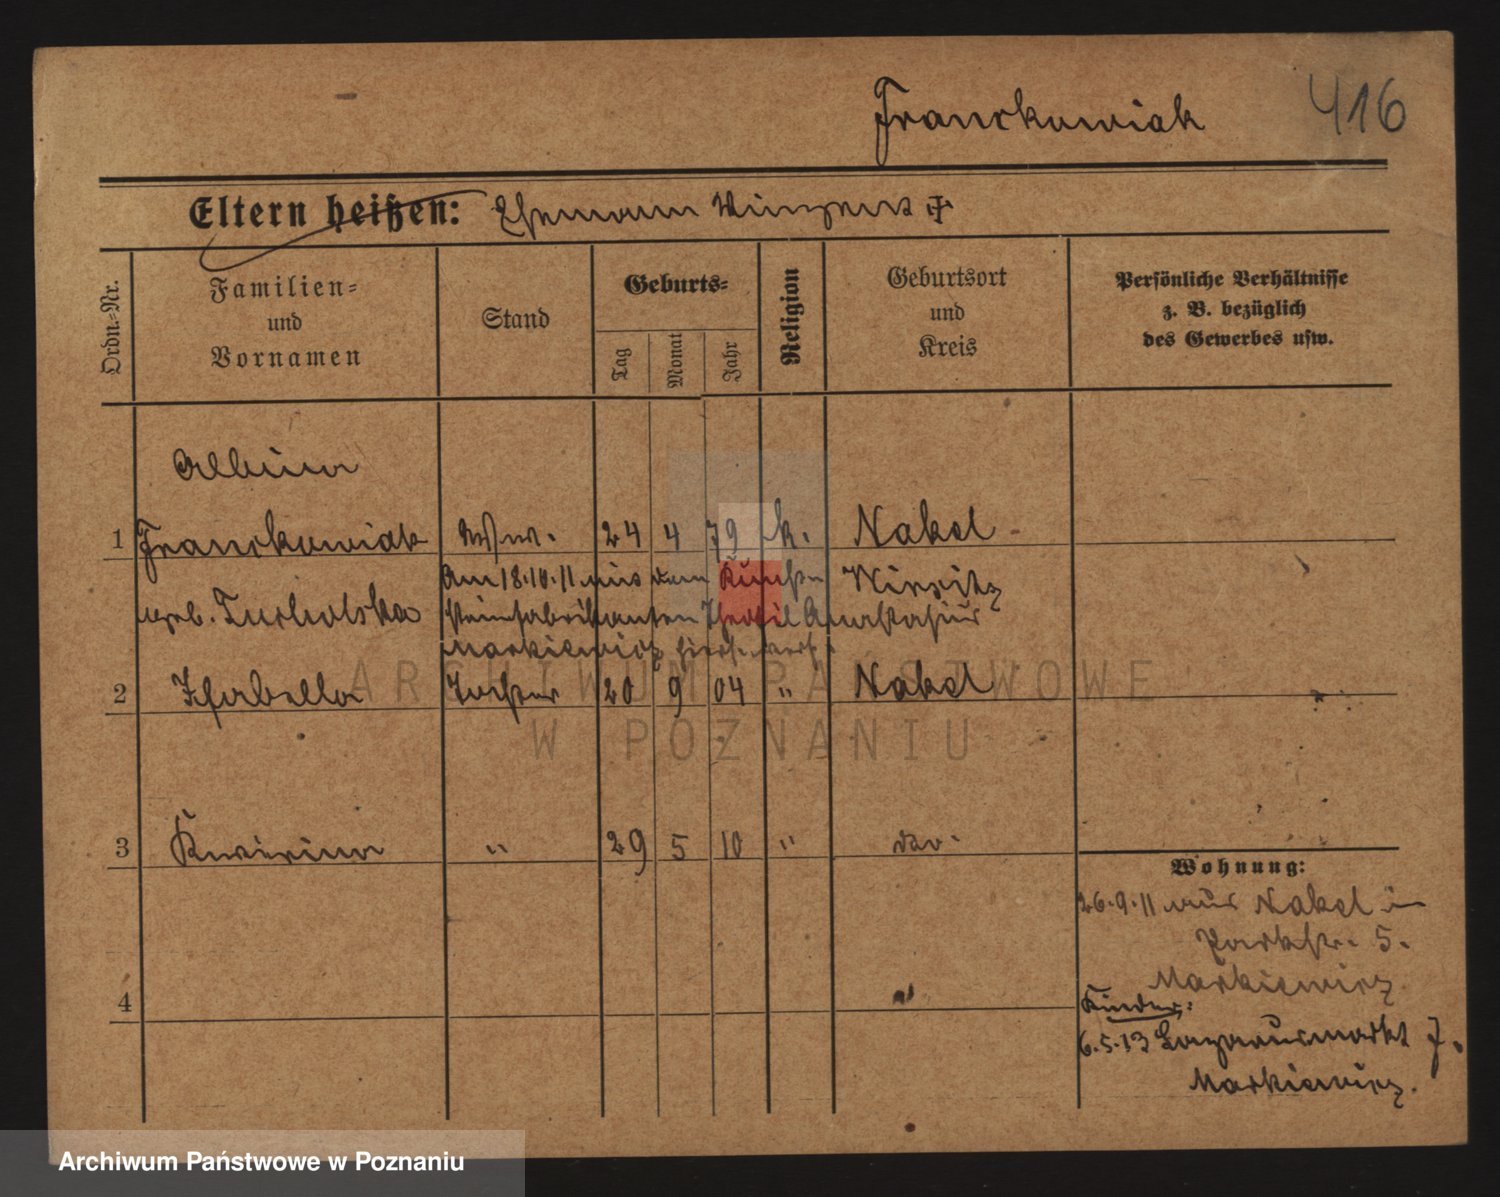 Franckowiak 416
Eltern heißen: Ehemann Vinzent †
Ordn.=Nr.
Familien=
und
Vornamen
Stand
Geburts=
Tag
Monat
Jahr
Religion
Geburtsort
und
Kreis
Persönliche Verhältnisse
z. B. bezüglich
des Gewerbes usw.
Albina
1 Franckowiak Ww. 24 4 79 k. Nakel
geb. Tucholska
Am 18.10.11 mit dem Kunst Wirsitz
steinfabrikanten Theofil Anastasius
Markiewicz hier verh.
2 Isabella Tochter 20 9 04 " Nakel
3 Kwirina " 29 5 10 " do.
4
Wohnung:
26.9.11 aus Nakel in
Parkstr. 5.
Markiewicz
Kinder:
6.5.13 Lazarusmarkt 7.
Markiewicz.
ARCHIWUM PAŃSTWOWE
W POZNANIU
Archiwum Państwowe w Poznaniu